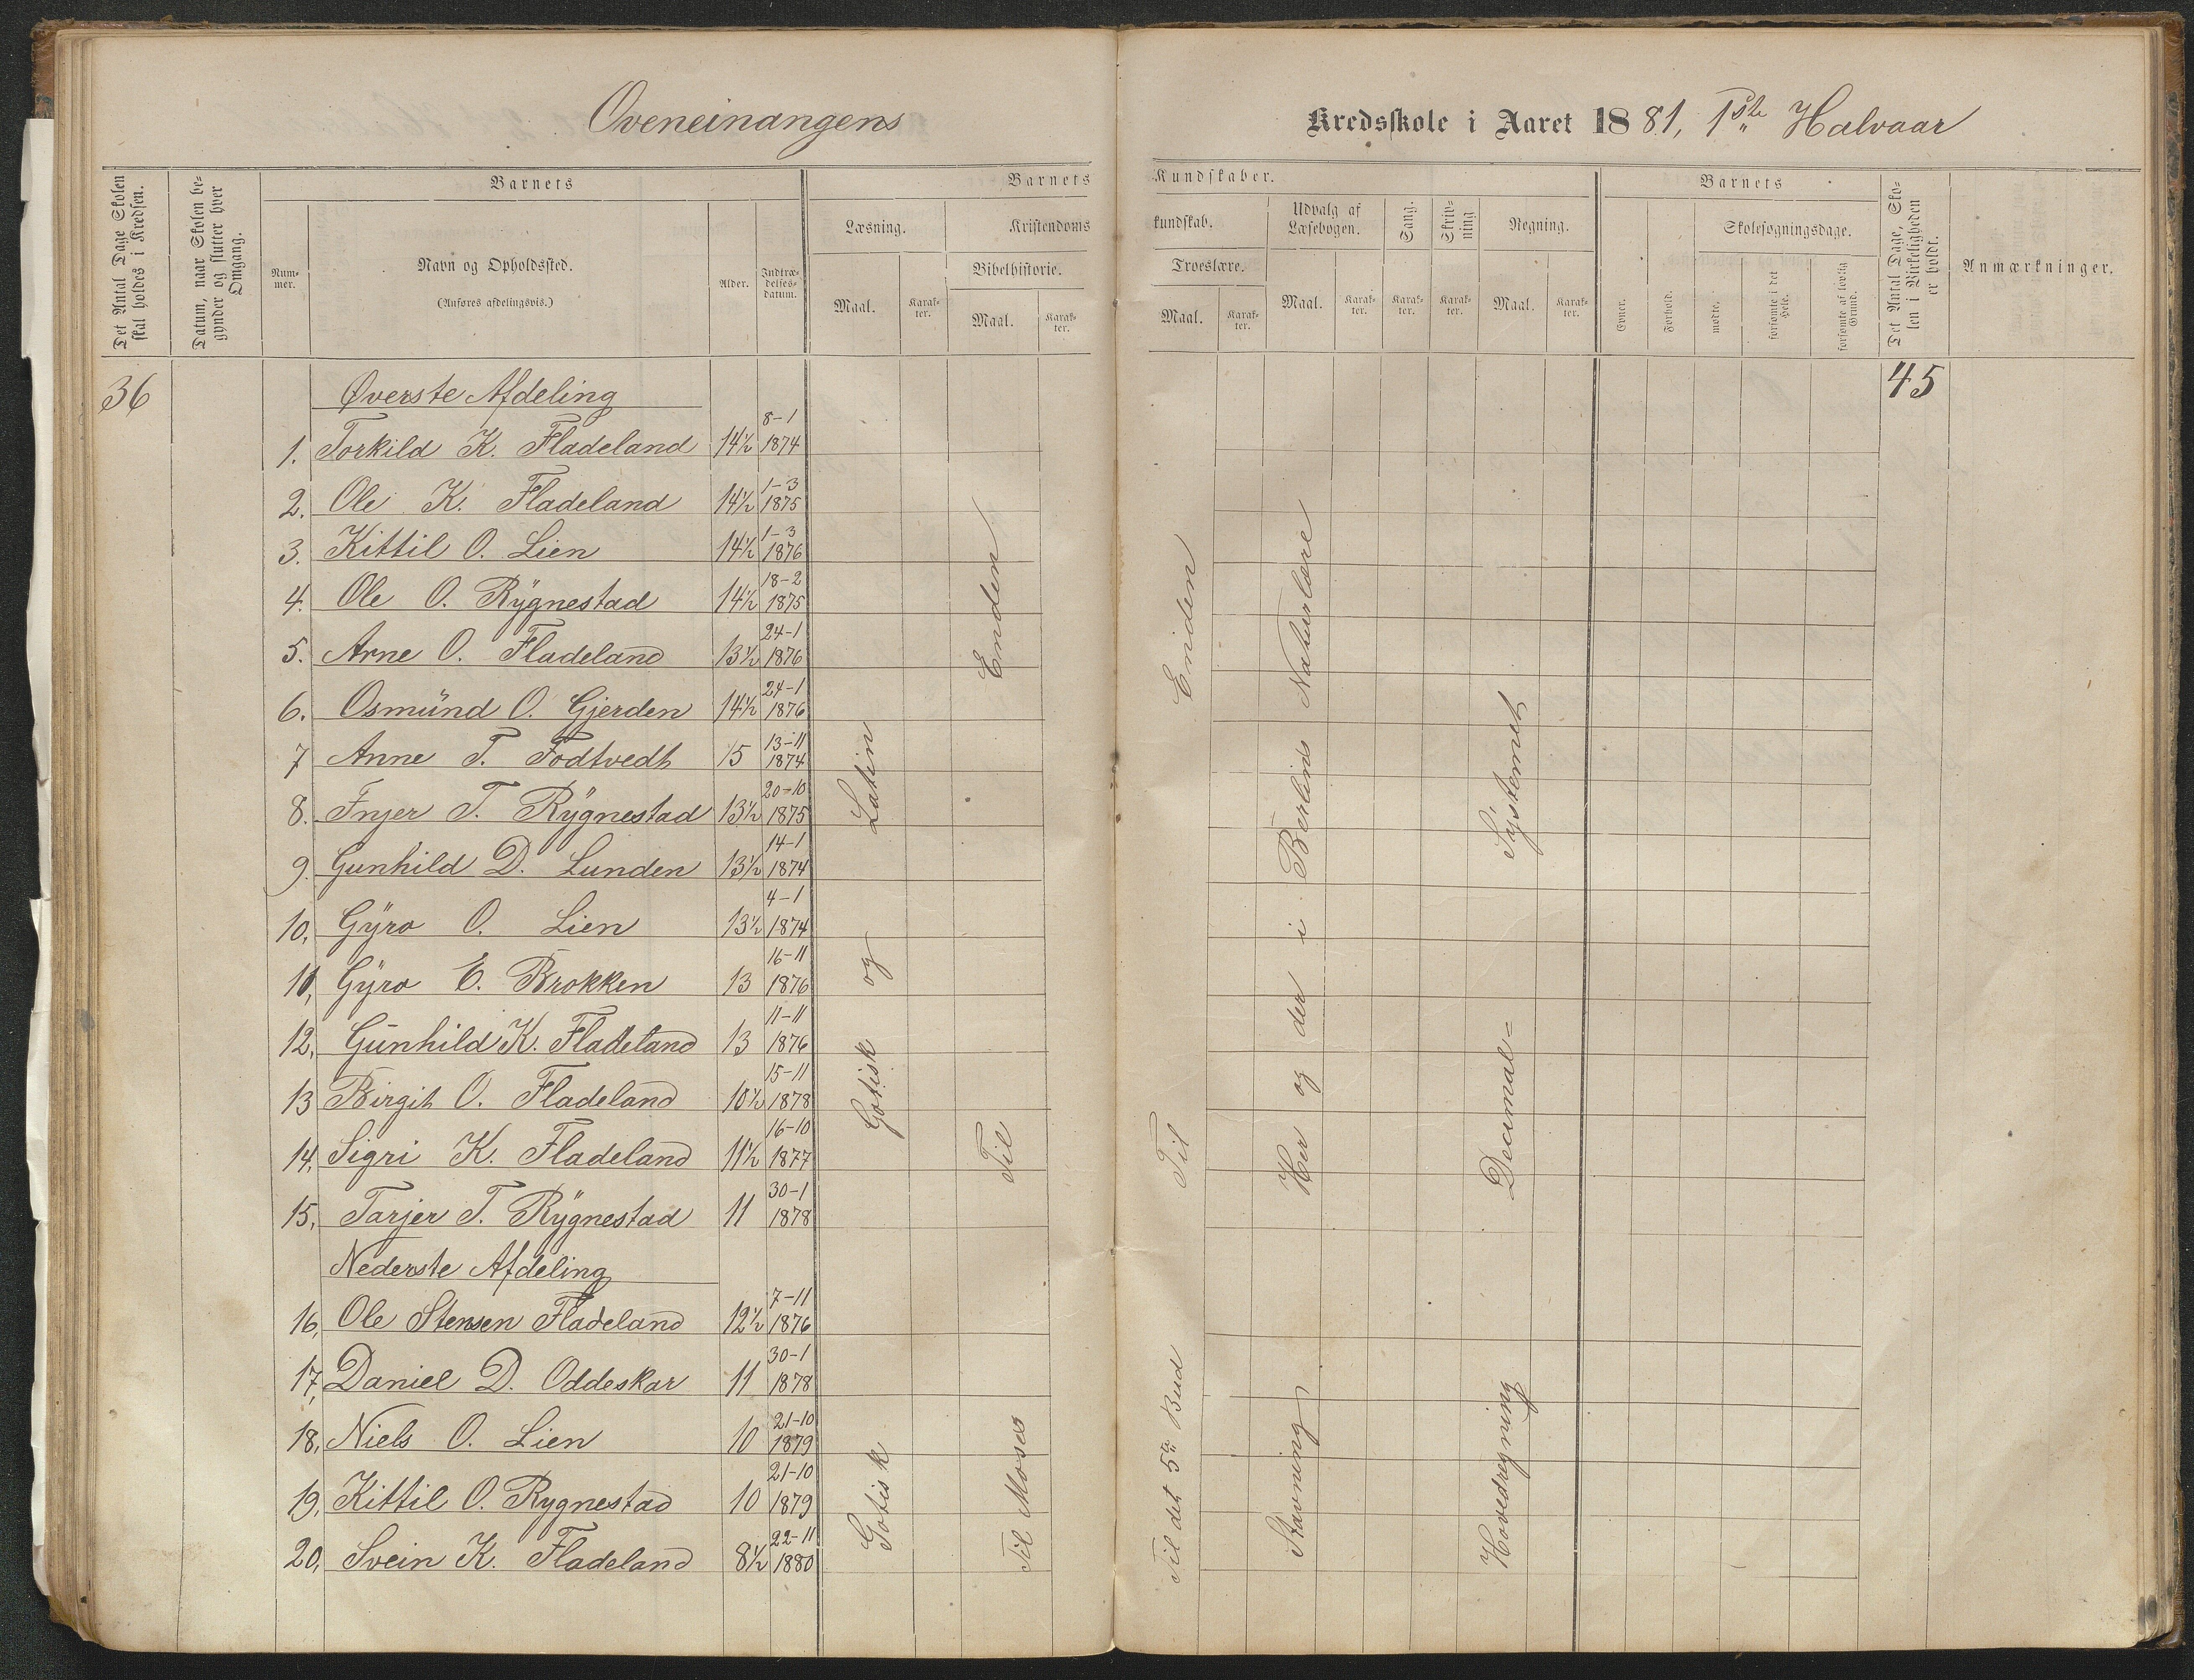 Øveneinangens
Kredsskole i Aaret 1881, 1ste Halvaar
Det Antal Dage Skolen skal holdes i Kredsen.
Datum, naar Skolen begynder og slutter hver Omgang.
Barnets
Nummer.
Navn og Opholdssted.
(Anføres afdelingsvis.)
Alder.
Indtrædelsesdatum.
Barnets
Læsning.
Maal.
Karakter.
Kristendoms
Bibelhistorie.
Maal.
Karakter.
Kundskaber.
kundskab.
Troeslære.
Maal.
Karakter.
Udvalg af Læsebogen.
Maal.
Karakter.
Sang.
Karakter.
Skrivning
Karakter.
Regning.
Maal.
Karakter.
Barnets
Evner.
Forhold.
Skolesøgningsdage.
mødte.
forsømte i det Hele.
forsømte af lovlig Grund.
Det Antal Dage, Skolen i Virkeligheden er holdt.
Anmærkninger.
36
Øverste Afdeling
45
1. Torkild K. Fladeland 14½ 8-1 1874
2. Ole K. Fladeland 14½ 1-3 1875
3. Kittil O. Lien 14½ 1-3 1876
4. Ole O. Rygnestad 14½ 18-2 1875
5. Arne O. Fladeland 13½ 24-1 1876
6. Osmund O. Gjerden 14½ 24-1 1876
7 Anne T. Fodtvedt 15 13-11 1874
8. Fnjer T. Rygnestad 13½ 20-10 1875
9. Gunhild D. Lunden 13½ 14-1 1874
10, Gyro O. Lien 13½ 4-1 1874
11, Gyro E. Brokken 13 16-11 1876
12, Gunhild K. Fladeland 13 11-11 1876
13 Birgit O. Fladeland 10½ 15-11 1878
14, Sigri K. Fladeland 11½ 16-10 1877
15, Tarjer T. Rygnestad 11 30-1 1878
Nederste Afdeling
16, Ole Stensen Fladeland 12½ 7-11 1876
17, Daniel D. Oddeskar 11 30-1 1878
18, Niels O. Lien 10 21-10 1879
19, Kittil O. Rygnestad 10 21-10 1879
20, Svein K. Fladeland 8½ 22-11 1880
Gotisk og Latin
Til Enden
Til Enden
Her og der i Berlins Naturlære
Decimal-Systemet
Gotisk
Til Moses
Til det 5te Bud
Stavning
Hovedregning